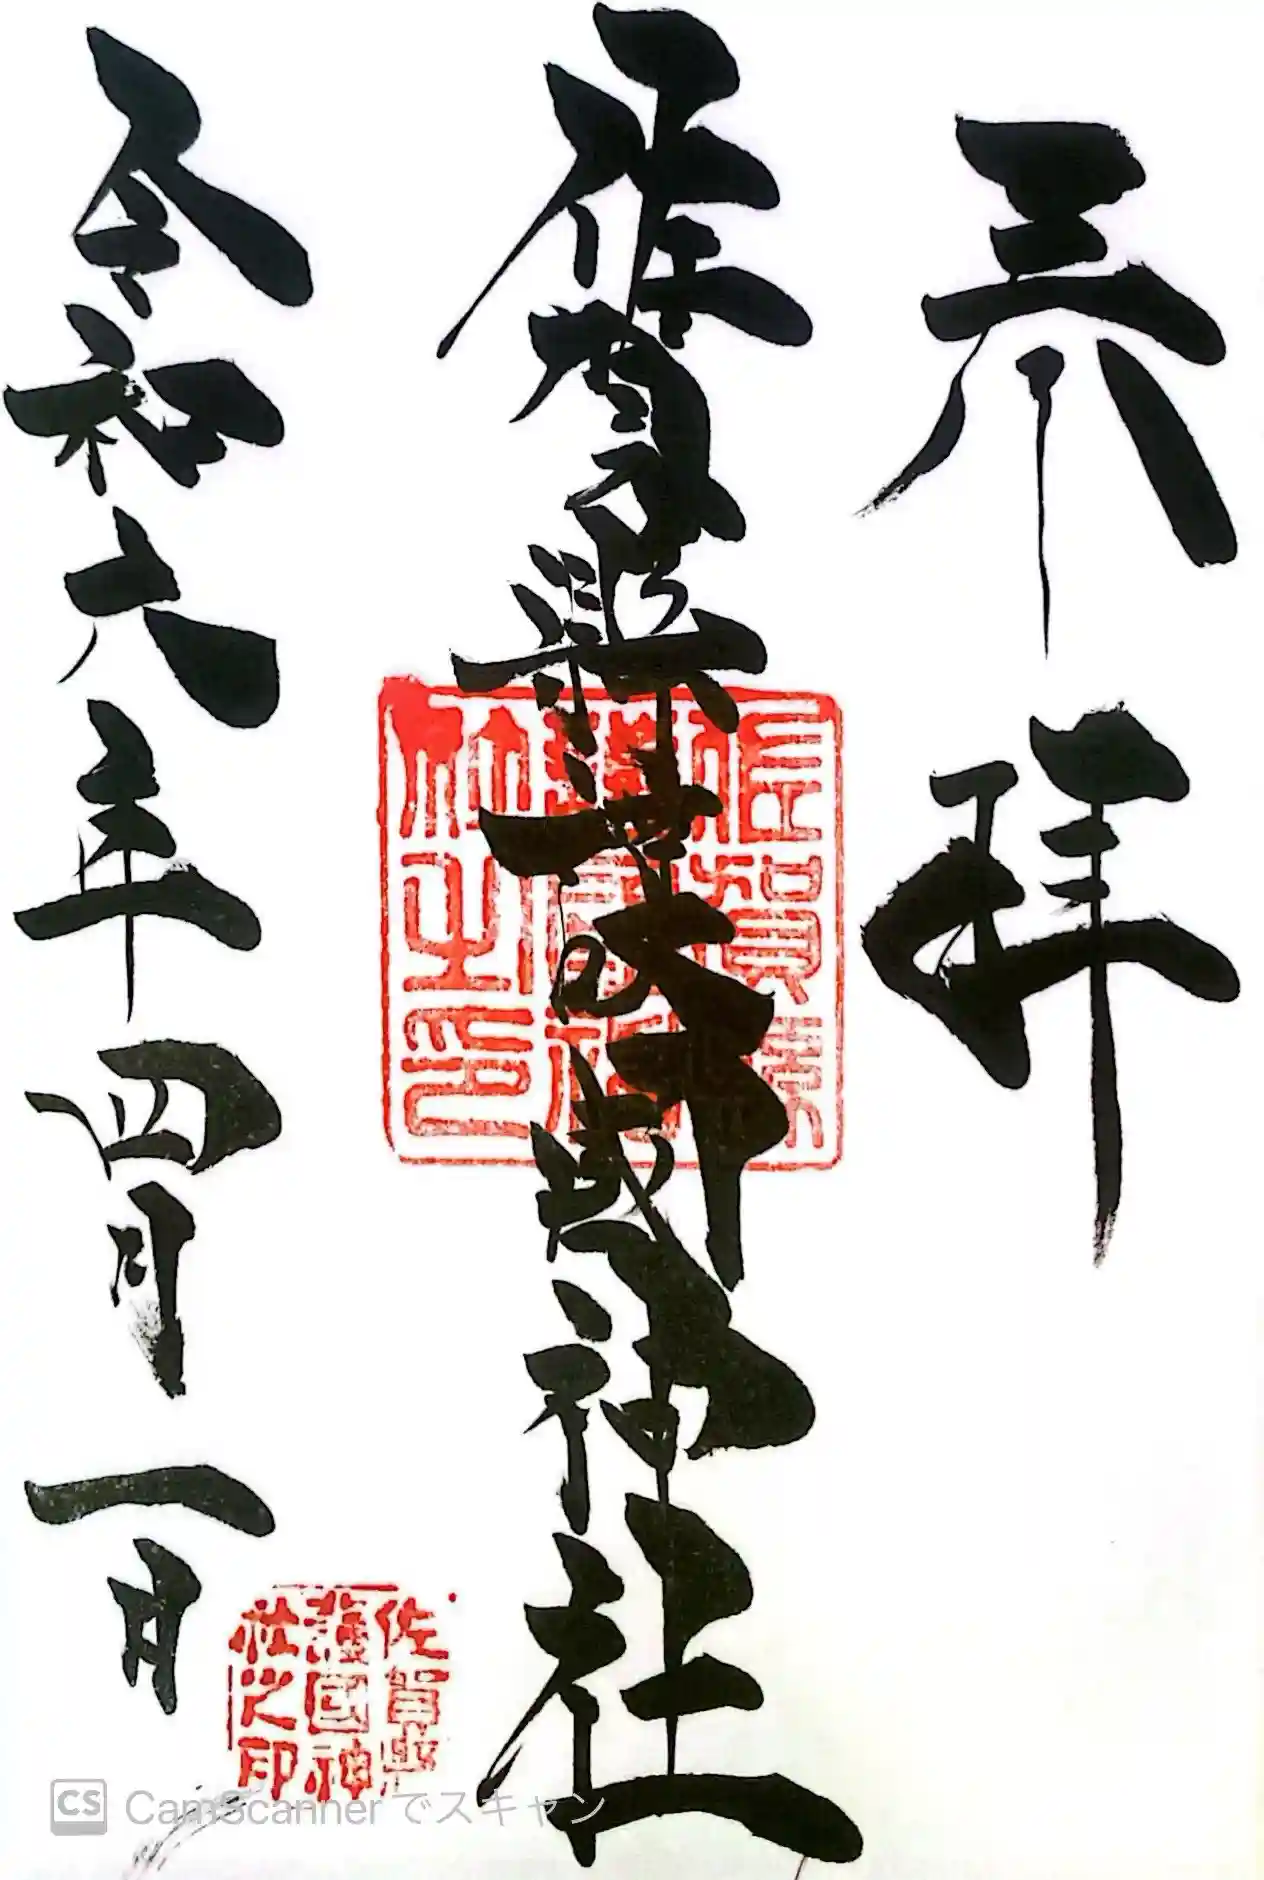 奉拝
佐賀縣護國神社
令和六年四月一日
佐賀縣
護國神
社之印
佐賀縣
護國神
社之印
CS CamScanner でスキャン